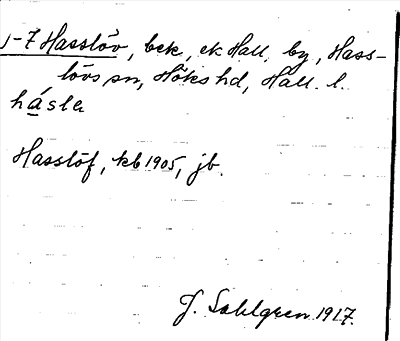 1-7 Hasslöv, bek, ek Hall, by, Hass-
lövs sn, Höks hd, Hall. l.
hásla
Hasslöf, kb 1905, jb.
J. Sahlgren 1917.